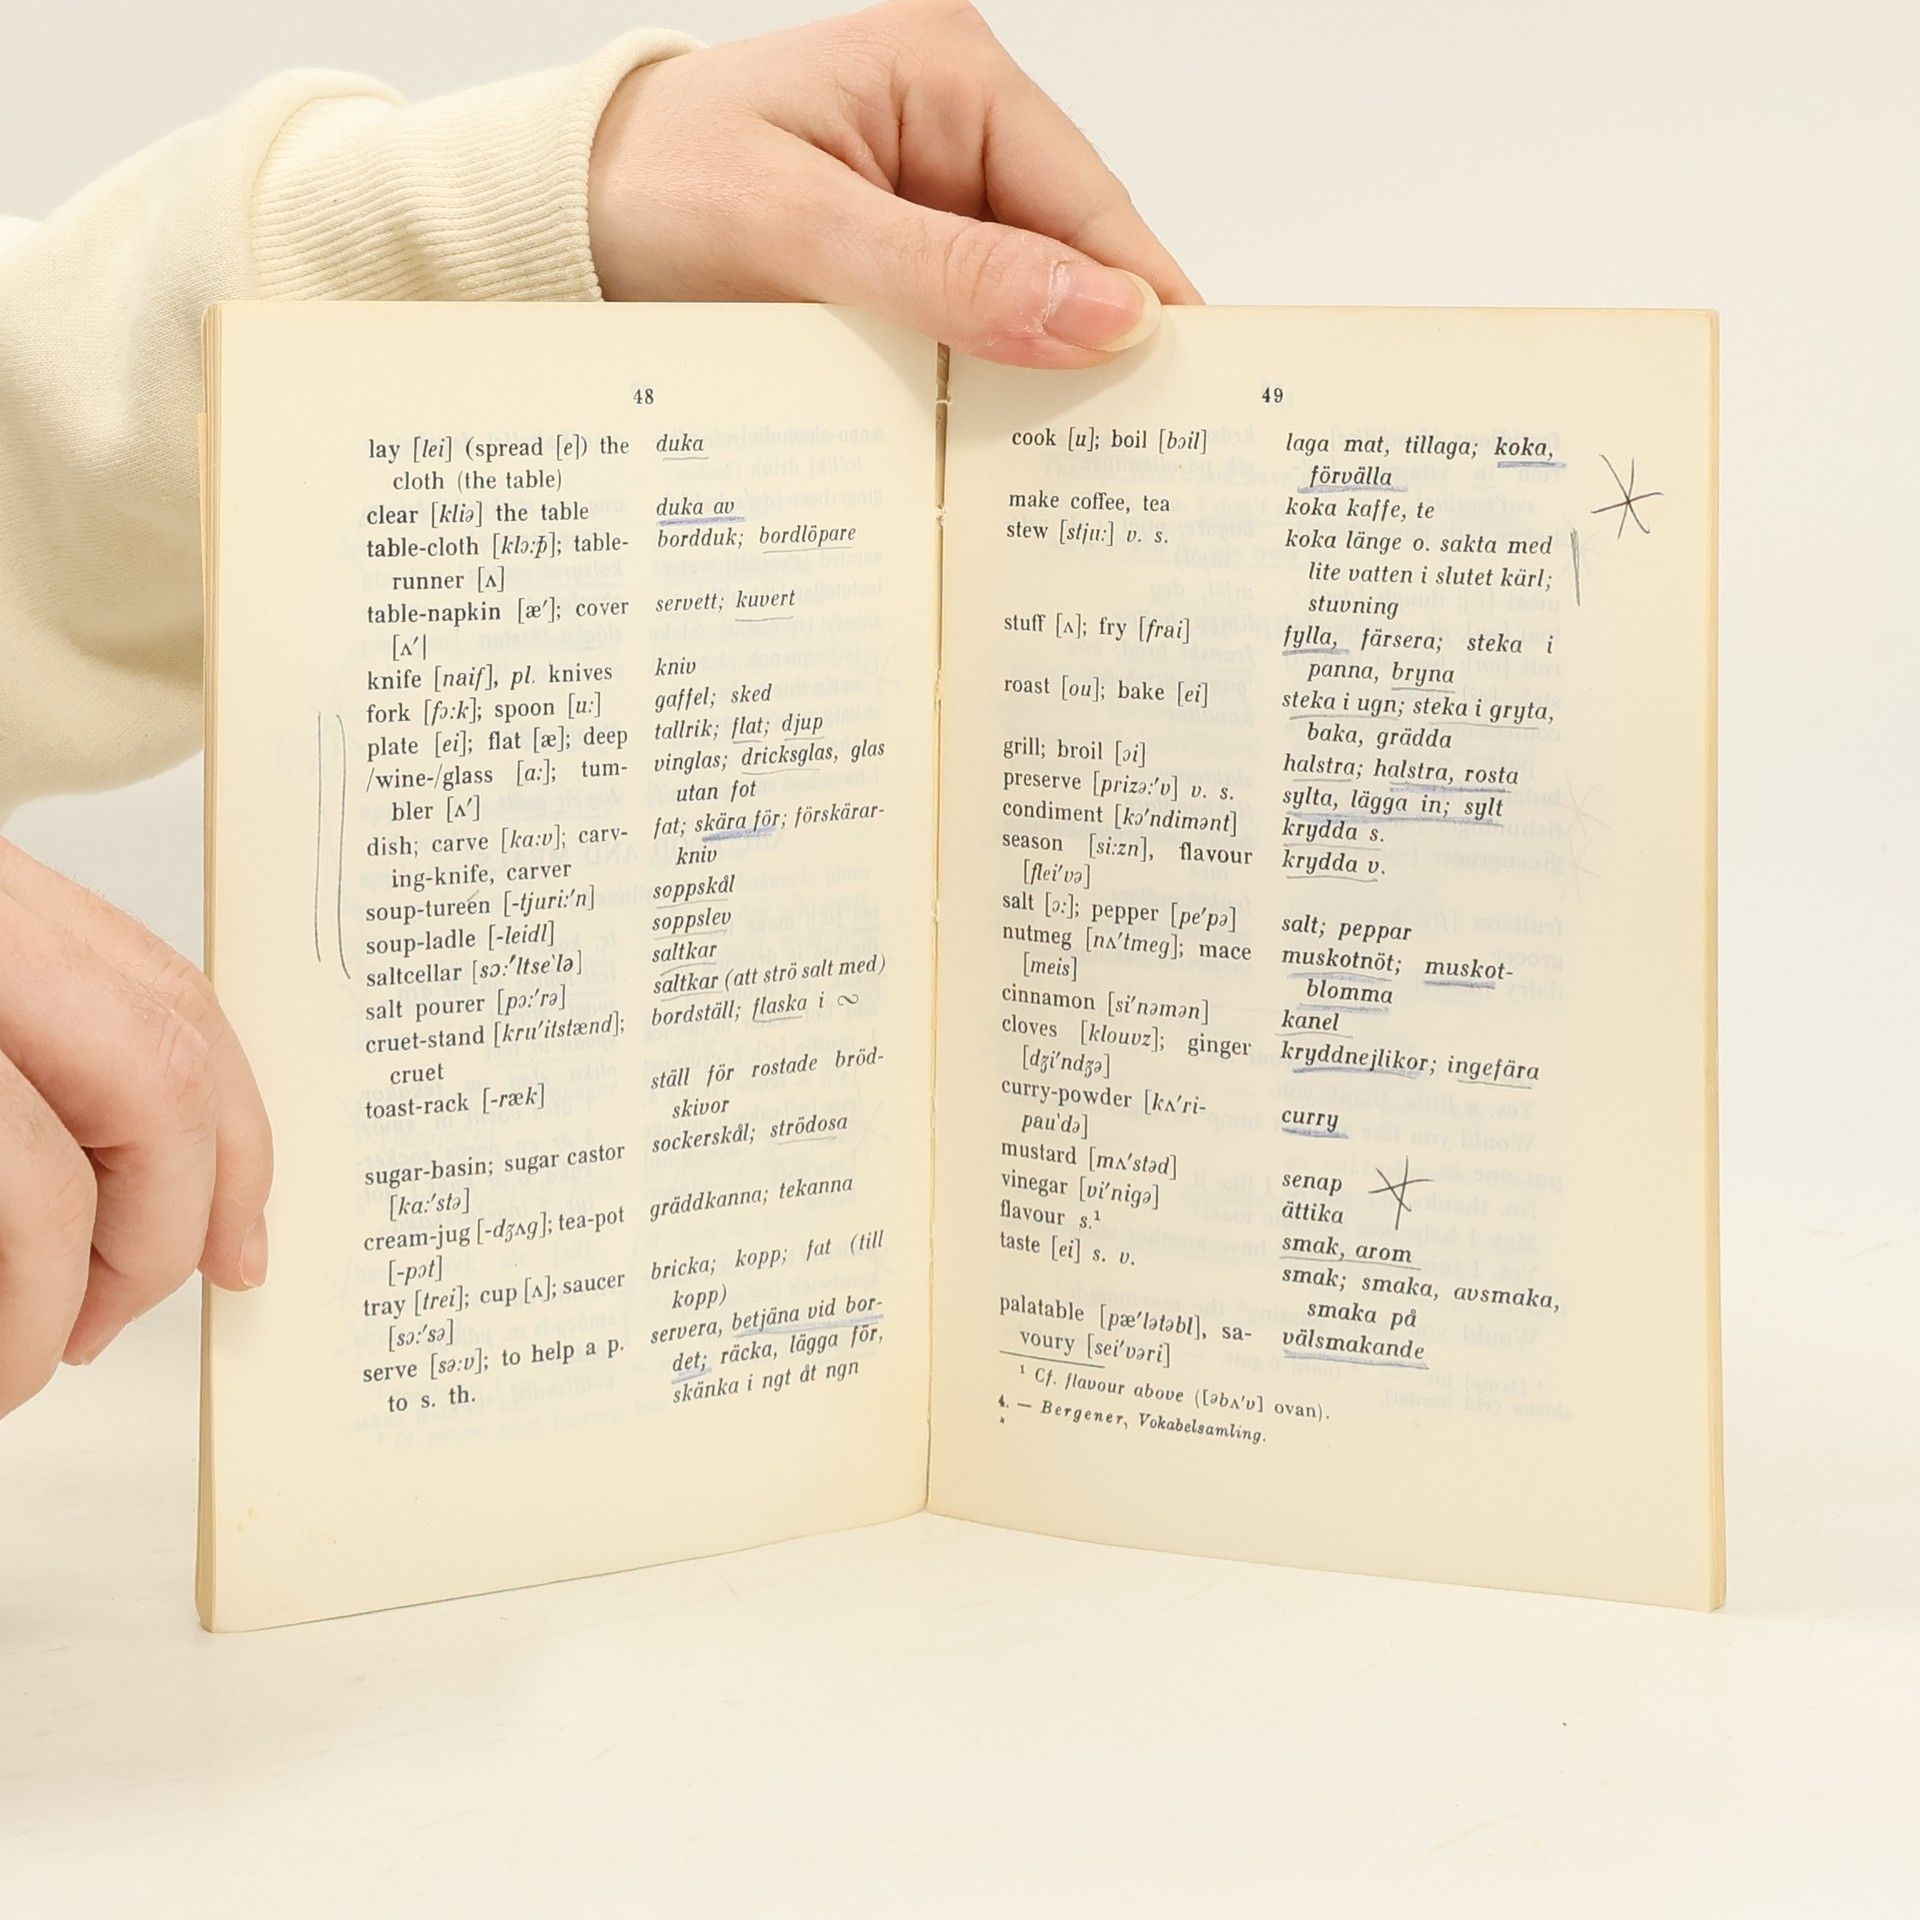 48
lay [lei] (spread [e]) the duka
cloth (the table)
clear [kliə] the table duka av
table-cloth [klɔ:þ]; table- bordduk; bordlöpare
runner [ʌ]
table-napkin [æ′]; cover servett; kuvert
[ʌ′]
knife [naif], pl. knives kniv
fork [fɔ:k]; spoon [u:] gaffel; sked
plate [ei]; flat [æ]; deep tallrik; flat; djup
/wine-/glass [a:]; tum- vinglas; dricksglas, glas
bler [ʌ′] utan fot
dish; carve [ka:v]; carv- fat; skära för; förskärar-
ing-knife, carver kniv
soup-tureen [-tjuri:′n] soppskål
soup-ladle [-leidl] soppslev
saltcellar [sɔ:′ltse`lə] saltkar
salt pourer [pɔ:′rə] saltkar (att strö salt med)
cruet-stand [kru′itstænd]; bordställ; flaska i ∞
cruet
toast-rack [-ræk] ställ för rostade bröd-
skivor
sugar-basin; sugar castor sockerskål; strödosa
[ka:′stə]
cream-jug [-dʒʌg]; tea-pot gräddkanna; tekanna
[-pɔt]
tray [trei]; cup [ʌ]; saucer bricka; kopp; fat (till
[sɔ:′sə] kopp)
serve [sə:v]; to help a p. servera, betjäna vid bor-
to s. th. det; räcka, lägga för,
skänka i ngt åt ngn
49
cook [u]; boil [bɔil] laga mat, tillaga; koka,
förvälla
make coffee, tea koka kaffe, te
stew [stju:] v. s. koka länge o. sakta med
lite vatten i slutet kärl;
stuvning
stuff [ʌ]; fry [frai] fylla, färsera; steka i
panna, bryna
roast [ou]; bake [ei] steka i ugn; steka i gryta,
baka, grädda
grill; broil [ɔi] halstra; halstra, rosta
preserve [prizə:′v] v. s. sylta, lägga in; sylt
condiment [kɔ′ndimənt] krydda s.
season [si:zn], flavour krydda v.
[flei′və]
salt [ɔ:]; pepper [pe′pə] salt; peppar
nutmeg [nʌ′tmeg]; mace muskotnöt; muskot-
[meis] blomma
cinnamon [si′nəmən] kanel
cloves [klouvz]; ginger kryddnejlikor; ingefära
[dʒi′ndʒə]
curry-powder [kʌ′ri- curry
pau`də]
mustard [mʌ′stəd] senap
vinegar [vi′nigə] ättika
flavour s.¹ smak, arom
taste [ei] s. v. smak; smaka, avsmaka,
smaka på
palatable [pæ′lətəbl], sa- välsmakande
voury [sei′vəri]
¹ Cf. flavour above ([əbʌ′v] ovan).
4. — Bergener, Vokabelsamling.